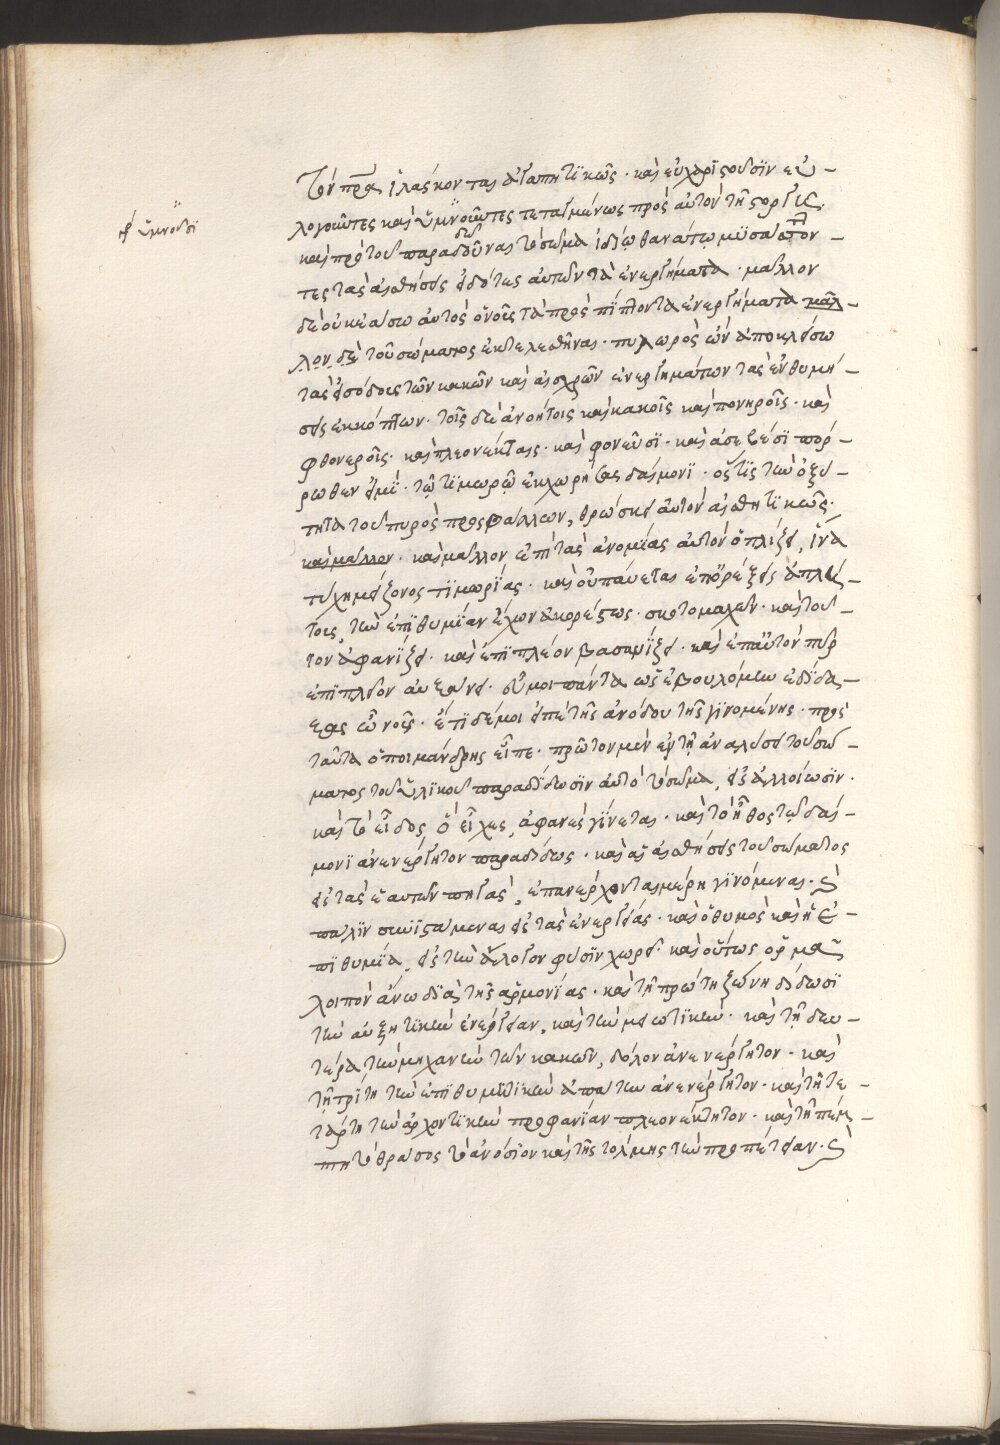 τὸν πρ̅α ἱλάσκονται ἀγαπητϊκῶς · καὶ εὐχαρϊστοῦσϊν εὐ –
λογοῦντες καὶ ὑμνοῦντες τεταγμένως πρὸς αὐτὸν τῆ στοργῆ.
καὶ ὑμνοῦσϊ
καὶ πρὸ τοῦ παραδοῦναι τὸ σῶμα ἰδίω θανάτω μϋσάττον –
δω
τες τὰς αἰσθήσεις εἰδότες αὐτῶν τὰ ἐνεργήματα · μᾶλλον
δὲ οὐκ ἐάσω αὐτὸς ὁ νοῦς τὰ προσπίπτοντα ἐνεργήματα μᾶλ –
λον δὲ τοῦ σώματος ἐκτελεσθῆναι · πυλωρὸς ὢν ἀποκλείσω
τὰς εἰσόδους τῶν κακῶν καὶ αἰσχρῶν ἐνεργημάτων τὰς ἐνθυμή
σεις ἐκκόπτων · τοῖς δὲ ἀνοήτοις καὶ κακοῖς καὶ πονηροῖς · καὶ
φθονεροῖς · καὶ πλεονέκταις · καὶ φονεῦσϊ · καὶ ἀσεβέσϊ πόρ –
ρωθεν εἰμὶ · τῶ τϊμωρῶ ἐκχωρήσας δαίμονϊ · ὅστϊς τὴν ὀξύ –
τητα τοῦ πυρὸς προσβάλλων, θρώσκει αὐτὸν αἰσθητϊκῶς ·
καὶ μᾶλλον · καὶ μᾶλλον ἐπὶ τὰς ἀνομίας αὐτὸν ὁπλίζει, ἵνα
τύχη μείζονος τϊμωρίας · καὶ οὐ παύεται ἐπ' ὀρέξεις ἀπλέ –
τους, τὴν ἐπϊθυμίαν ἔχων ἀκορέστως · σκοτομαχῶν · καὶ τοῦ –
τον ἀφανίζει · καὶ ἐπϊπλέον βασανίζει · καὶ ἐπ' αὐτὸν πῦρ
ἐπϊπλεῖον αὐξάνει · εὖ μοι πάντα ὡς ἐβουλόμην ἐδίδα –
ξας ὦ νοῦς · ἔτϊ δέ μοι εἰπὲ τῆς ἀνόδου τῆς γϊνομένης · πρὸς
ταῦτα ὁ ποιμάνδρης εἶπε · πρῶτον μὲν ἐν τῆ ἀναλύσει τοῦ σώ –
ματος τοῦ ὑλϊκοῦ παραδίδωσϊν αὐτὸ τὸ σῶμα, εἰς ἀλλοίωσϊν ·
καὶ τὸ εἶδος, ὃ εἶχες, ἀφανὲς γίνεται · καὶ τὸ ἦθος τῶ δαί –
μονϊ ἀνενέργητον παραδίδως · καὶ αἱ αἰσθήσεις τοῦ σώματος
εἰς τὰς ἑαυτῶν πηγὰς, ἐπανέρχονται μέρη γϊνόμεναι · καὶ
πάλϊν συνϊστάμεναι εἰς τὰς ἐνεργείας · καὶ ὁ θυμὸς καὶ ἡ ἐ –
πϊθυμία, εἰς τὴν ἄλογον φύσϊν χωρεῖ · καὶ οὕτως ὁρμᾶ
λοιπὸν ἄνω δϊὰ τῆς ἁρμονίας · καὶ τῆ πρώτη ζώνη δίδωσϊ
τὴν αὐξητϊκὴν ἐνέργειαν, καὶ τὴν μειωτϊκὴν · καὶ τῆ δευ –
τέρα τὴν μηχανὴν τῶν κακῶν, δόλον ἀνενέργητον · καὶ
τῆ τρίτη τὴν ἐπϊθυμητϊκὴν ἀπάτην ἀνενέργητον · καὶ τῆ τε –
τάρτη τὴν ἀρχοντϊκὴν προφανίαν πλεονέκτητον · καὶ τῆ πέμ –
πτη τὸ θράσος τὸ ἀνόσϊον καὶ τῆς τόλμης τὴν προπέτειαν · καὶ